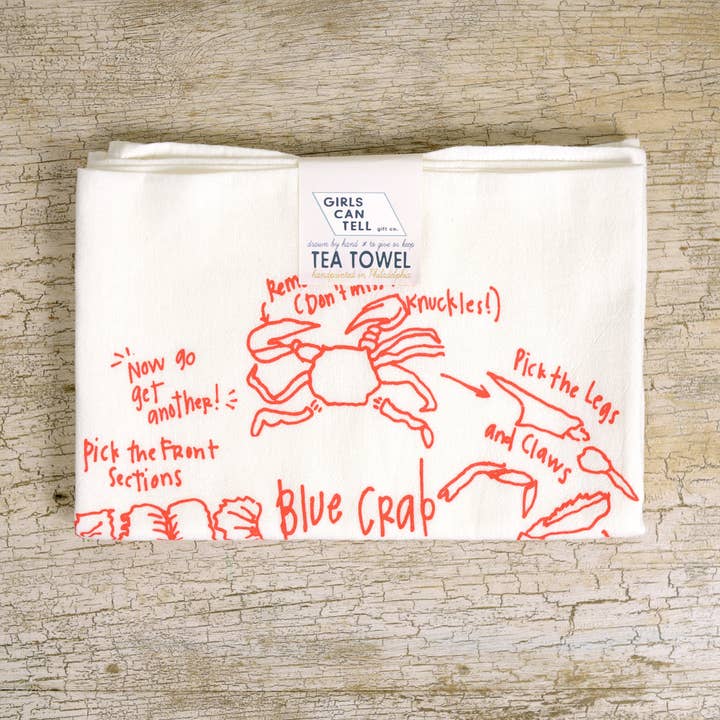 GIRLS
CAN
TELL gift co.
drawn by hand * to give us keep
TEA TOWEL
handprinted in Philadelphia
(Don't miss
Knuckles!)
Now go
get
another!
Pick the Front
Sections
Pick the Legs
and Claws
Blue Crab